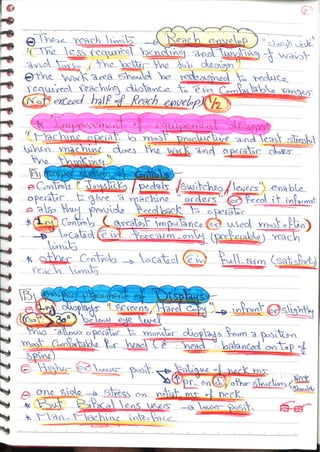 ⊖ These reach limits → Reach envelop
"The less required bending and twisting of waist
and torso, the better the Job design"
⊖ the work area should be redesigned to reduce
required reaching distance to be in Comfortable ranges
(Not exceed half of Reach envelop) 1/2
* Improvement of equipment design
"Machine operat. is most productive and least stressful
when machine does the work and operator does
the thinking"
A Proper design of Controls
⊖ Controls (Joysticks / pedals / switches / levers) enable
operator to give a machine orders or Feed it informat.
⊖ also that provide Feedback to operator
* 1ry Controls (greatest importance or used most often)
→ located in forearm-only (preferable) reach
limits
* other Controls → located in full-arm (satisfact.)
reach limits
B proper placement of Displays
⊖ 1ry displays (Screens, Hard Copy) → infront or slightly
(not > 30°) below eye level
this allows operator to monitor displays from a position
most Comfortable for head (head balanced on top of
spine)
⊖ Higher or lower posit. → Fatigue of neck ms.
↑ pr. on other structures (neck
⊖ one side → stress on rotist ms. of neck.
* But Bifocal lens users → lower posit.
* Man-Machine interface